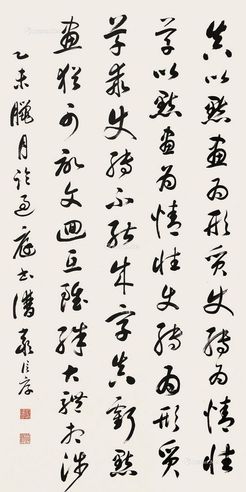 真以點畫為形質使轉為情性
草以點畫為情性使轉為形質
草乖使轉不能成字真虧點
畫猶可記文迴互雖殊大體相涉
乙未臘月臨過庭書譜